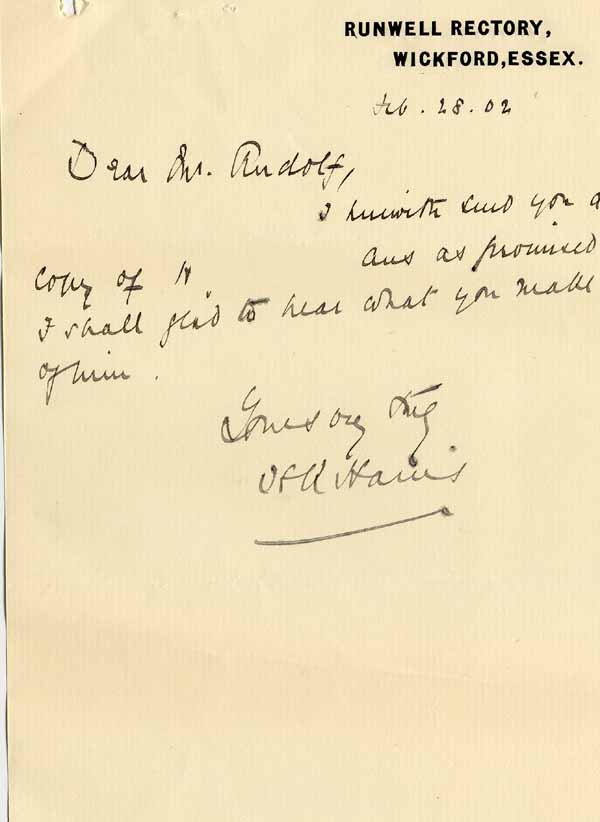 RUNWELL RECTORY,
WICKFORD, ESSEX.
Feb. 28. 02
Dear Mr. Rudolf,
I herewith send you a
copy of H ans as promised
I shall glad to hear what you make
of him.
Yours
Harris